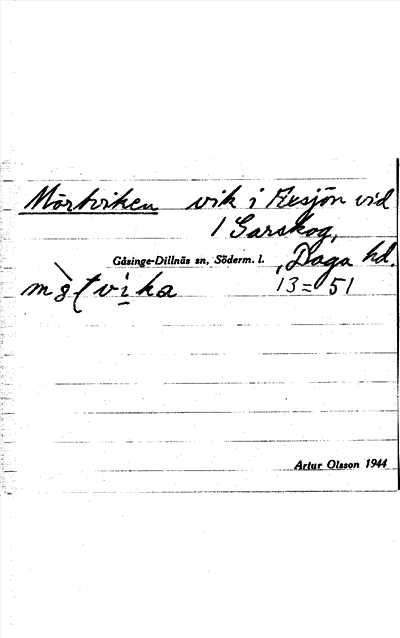 Mörtviken vik i Exsjön vid
1 Garskog,
Gåsinge-Dillnäs sn, Söderm. l. , Daga hd.
13 = 51
Artur Olsson 1944